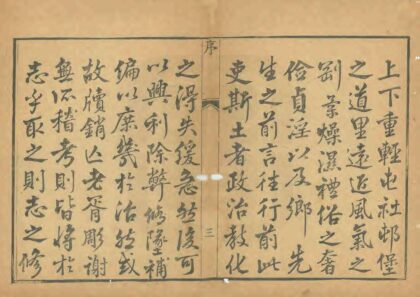 上下重輕屯社邨堡
之道里遠近風氣之
剛柔燥濕禮俗之奢
儉貞淫以及鄉先
生之前言往行前此
吏斯土者政治教化
序
三
之得失緩急然後可
以興利除弊修墜補
偏以庶幾於治然或
故牘銷亡老胥彫謝
無所稽考則皆將於
志乎取之則志之修